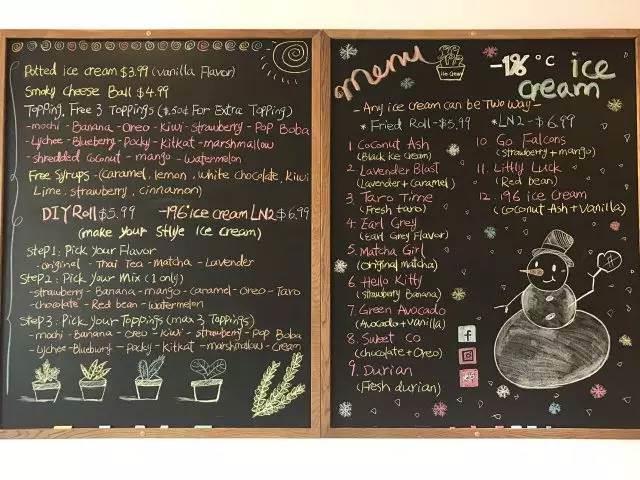 Potted ice cream $3.99 (vanilla Flavor)
Smoky Cheese Ball $4.99
Topping. Free 3 Toppings ($.50¢ For Extra Topping)
-mochi - Banana - Oreo - Kiwi - strawberry - Pop Boba
-Lychee - Blueberry - Pocky - Kitkat - marshmallow
-shredded Coconut - mango - watermelon
Free Syrups - (Caramel, lemon, white chocolate, Kiwi
Lime, strawberry, cinnamon)
DIY Roll $5.99 -196 ice cream LN2 $6.99
(make your Style ice cream)
Step 1: Pick Your Flavor
-original - Thai Tea - Matcha - Lavender
Step 2: Pick Your Mix (1 only)
-strawberry - Banana - mango - caramel - Oreo - Taro
-chocolate - Red bean - watermelon
Step 3: Pick your Toppings (max 3 Toppings)
-mochi - Banana - Oreo - Kiwi - strawberry - Pop Boba
-Lychee - Blueburry - pocky - Kitkat - marshmallow - Cream
menu
Ice Cream
-196 °C ice cream
-Any ice cream can be Two way-
*Fried Roll-$5.99 *LN2-$6.99
1. Coconut Ash
(Black ice cream)
2. Lavender Blast
(Lavender + caramel)
3. Taro Time
(Fresh taro)
4. Earl Grey
(Earl Grey Flavor)
5. Matcha Girl
(original matcha)
6. Hello Kitty
(strawberry Banana)
7. Green Avocado
(Avocado + vanilla)
8. Sweet CO
(chocolate + Oreo)
9. Durian
(Fresh durian)
10. Go Falcons
(strawberry + mango)
11. Little Luck
(Red bean)
12. 196 ice Cream
(Coconut Ash + Vanilla)